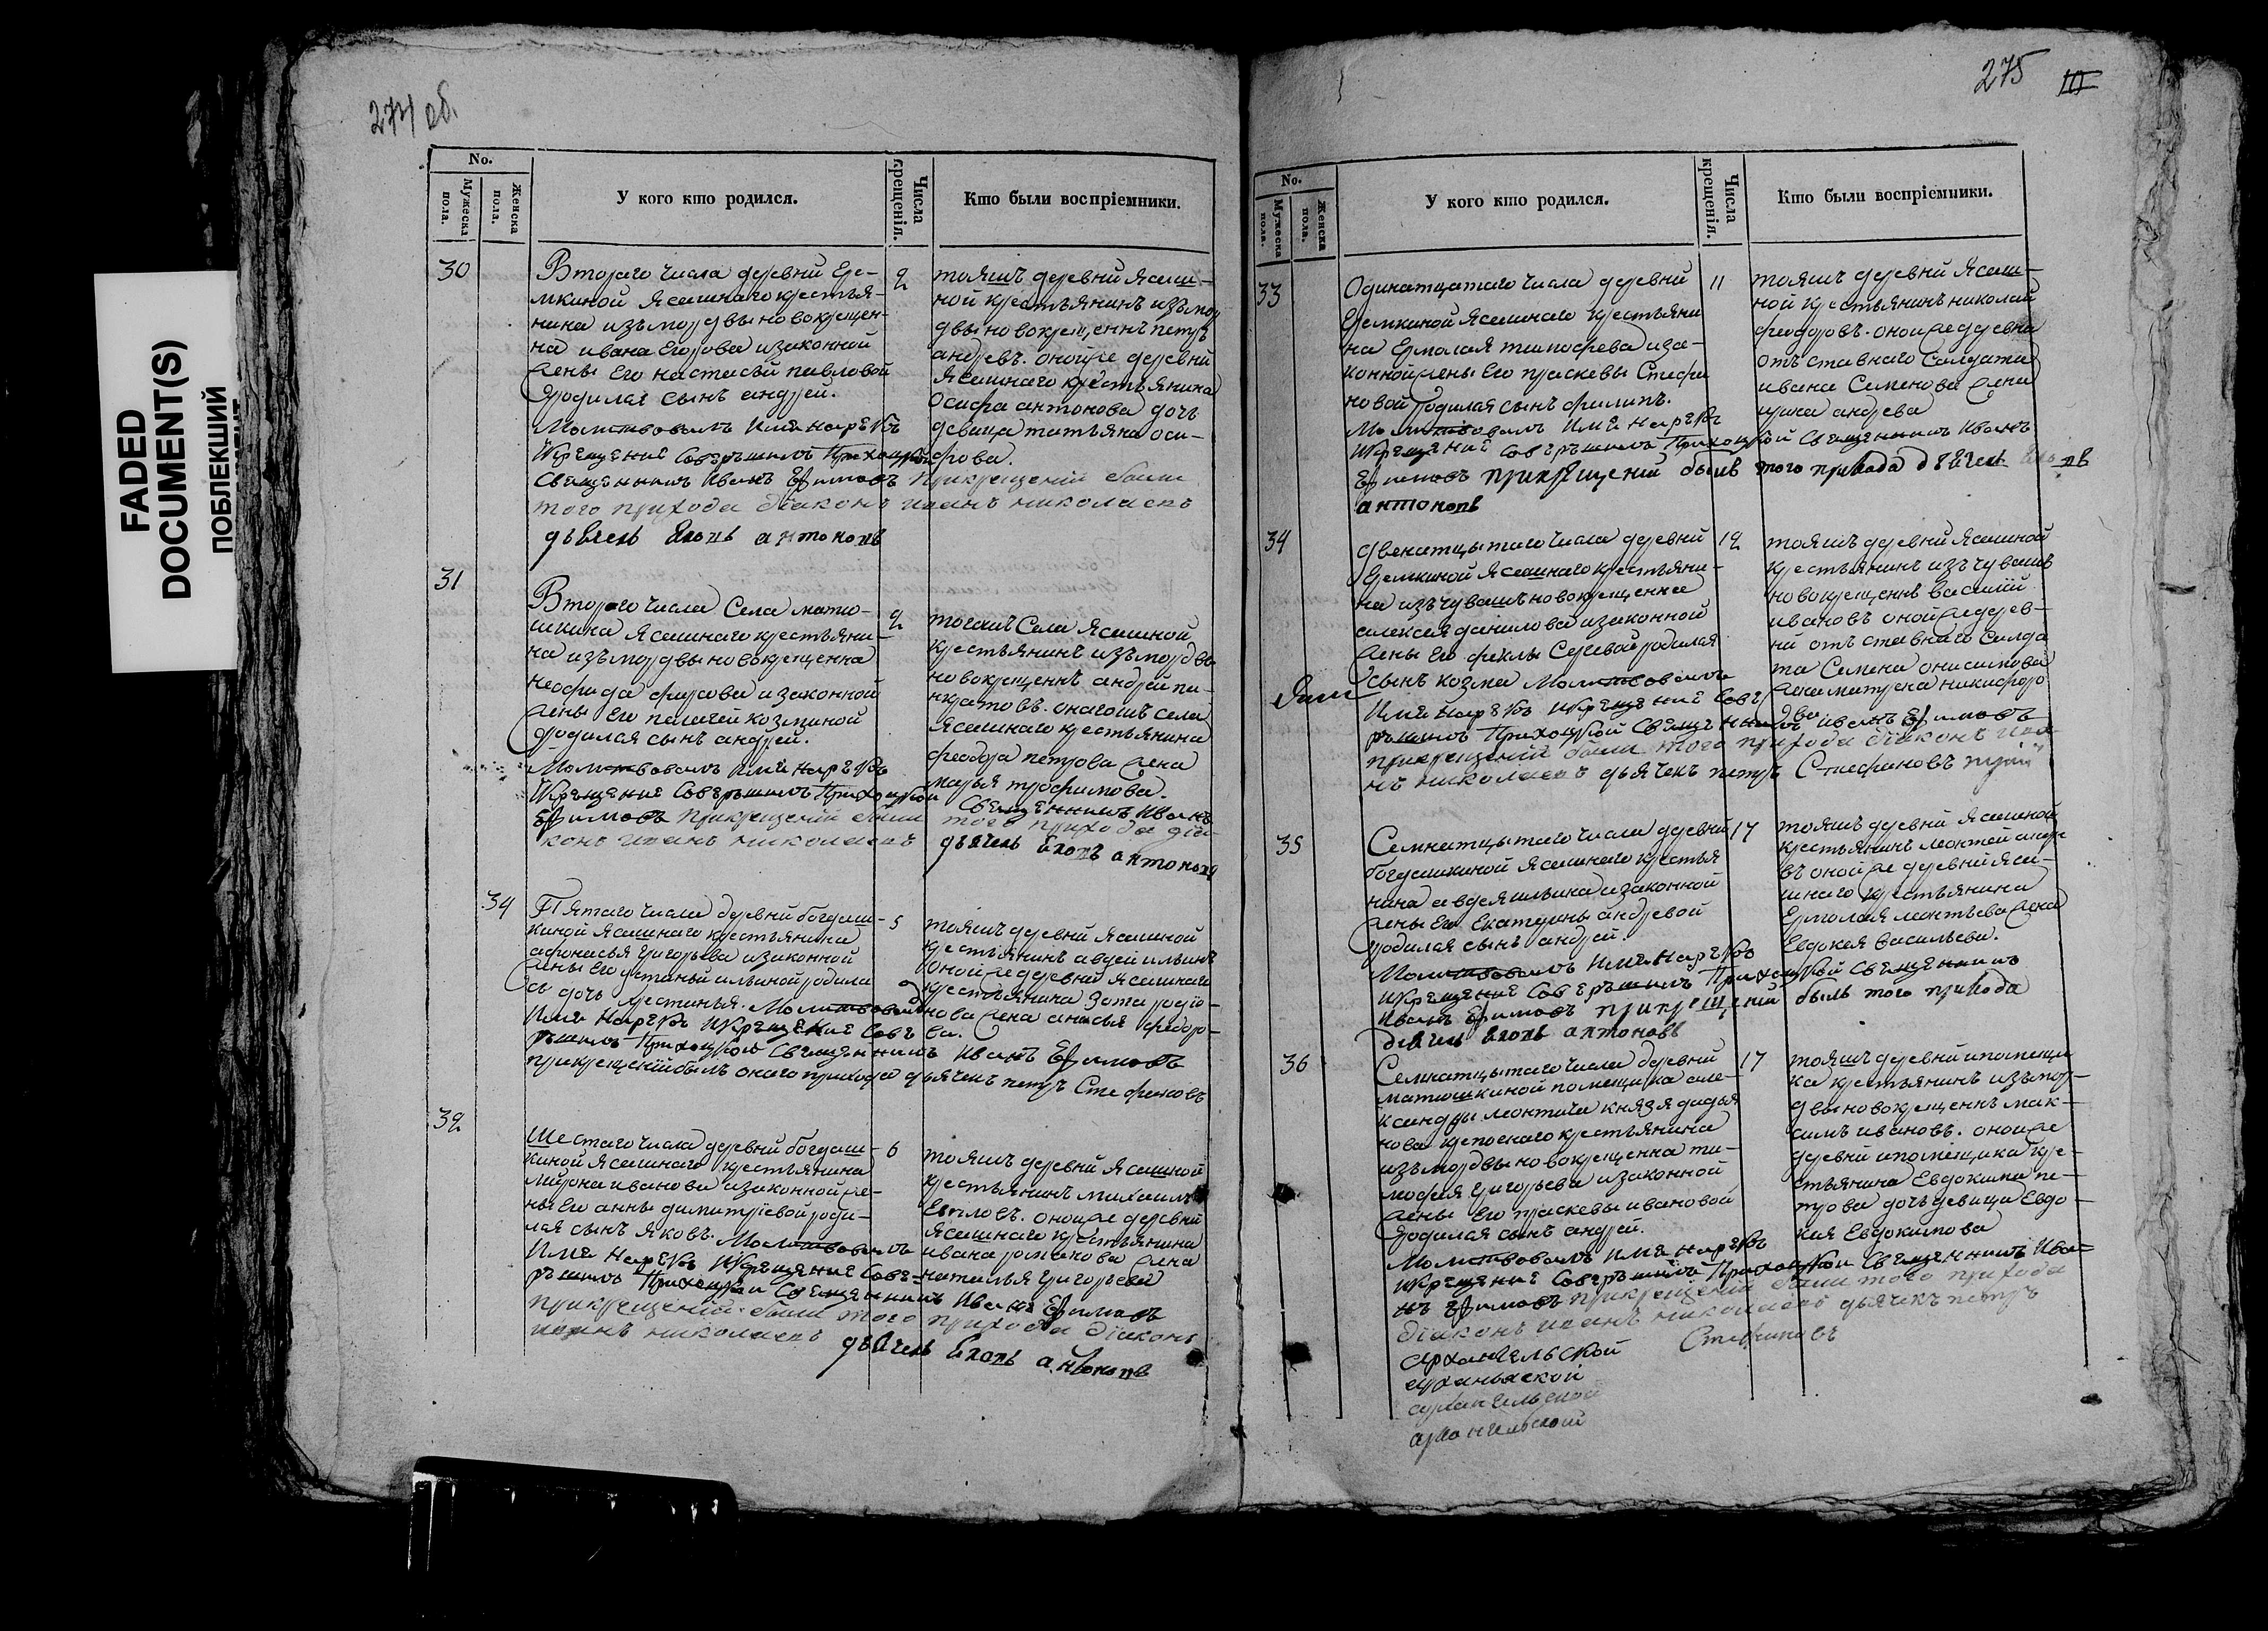 FADED
DOCUMENT(S)
ПОБЛЕКШИЙ
274 об.
No.
Мужеска пола.
Женска пола.
У кого кто родился.
Числа крещенія.
Кто были воспріемники.
30
Втораго числа деревни Ере-
мкиной Ясашнаго крестья-
нина изъ мордвы новокрещен-
на ивана Егорова изаконной
жены Его настасьи павловой
родился сынъ андрей.
Молитвовалъ имя нарекъ
икрещение совершилъ Приходской
священникъ Иванъ Ефимовъ прикрещении были
того прихода діаконъ иванъ николаевъ
дьячекъ антоновъ
2
тояжъ деревни Ясаш-
ной крестьянинъ изъ мор
двы новокрещеннъ петръ
андревъ. онойже деревни
Ясашнаго крестьянина
Осифа антонова дочь
девица татьяна оси-
фова.
31
Втораго числа Села матю-
шкина Ясашнаго крестьяни-
на изъ мордвы новокрещенна
фирсова изаконной
жены Его пелагеи козминой
родился сынъ андрей.
Молитвовалъ имя нарекъ
икрещение совершилъ Приходской
священникъ Иванъ
Ефимовъ прикрещении были того прихода діа-
конъ иванъ николаевъ
дьячекъ антоновъ
2
тогожъ Села Ясашной
крестьянинъ изъ мордвы
новокрещеннъ андрей па-
нкратовъ. оногожъ села
Ясашнаго крестьянина
феодора петрова жена
марья трофимова.
34
Пятаго числа деревни богдаш-
киной Ясашнаго крестьянина
афонасья Григорьева изаконной
жены Его устиньи ильиной родила
сь дочь Молитвовалъ
имя нарекъ икрещение сове
ршилъ Приходской священникъ Иванъ Ефимовъ
прикрещении былъ онаго прихода дьячекъ петръ Стефановъ
5
тояжъ деревни Ясашной
крестьянинъ авдей ильинъ
онойже деревни Ясашнаго
крестьянина Зота родіо-
нова жена анисья федоро-
ва.
32
Шестаго числа деревни богдаш-
киной Ясашнаго крестьянина
мирона иванова изаконной же-
ны Его анны димитріевой роди-
лся сынъ Яковъ. Молитвовалъ
имя нарекъ икрещение сове-
ршилъ Приходской священникъ Иванъ Ефимовъ
прикрещении были того прихода діаконъ
иванъ николаевъ дьячекъ антоновъ
6
тояжъ деревни Ясашной
крестьянинъ михаилъ
онойже деревни
Ясашнаго крестьянина
ивана романова жена
наталья григорьева
275
No.
Мужеска пола.
Женска пола.
У кого кто родился.
Числа крещенія.
Кто были воспріемники.
33
Одинатцатаго числа деревни
Еремкиной Ясашнаго крестьяни
на Ермолая тимофева иза-
конной жены Его прасковы Стефа
новой родился сынъ филипъ.
Молитвовалъ имя нарекъ
икрещение совершилъ Приходской священникъ Иванъ
Ефимовъ прикрещении былъ того прихода дьячекъ
антоновъ
11
тояжъ деревни Ясаш-
ной крестьянинъ николай
феодоровъ. онойже деревни
отъставнаго Салдата
ивана Семенова жена
ирина андрева
34
двенатцытаго числа деревни
Еремкиной Ясашнаго крестьяни-
на изъ чувашъ новокрещенна
алексея данилова изаконной
жены Его феклы Сергевой родился
сынъ козма Молитвовалъ
имя нарекъ икрещение сове
ршилъ Приходской священникъ иванъ Ефимовъ
прикрещении были того прихода діаконъ ива-
нъ николаевъ дьячекъ петръ Стефановъ
12
тояжъ деревни Ясашной
крестьянинъ изъ чувашъ
новокрещеннъ василій
ивановъ онойже дерев-
ни отъставнаго Салда
та Семена онисимова
жена матрена никифоро
ва
35
Семнатцытаго числа деревни
богдашкиной Ясашнаго крестья
нина авдея ильина изаконной
жены Его Екатерины андревой
родился сынъ андрей.
Молитвовалъ имя нарекъ
икрещение совершилъ Приходской священникъ
Иванъ Ефимовъ прикрещении былъ того прихода
дьячекъ антоновъ
17
тояжъ деревни Ясашной
крестьянинъ леонтей
въ онойже деревни Яса-
шнаго крестьянина
Ермолая леонтьева жена
Евдокея васильева.
36
Семнатцытаго числа деревни
матюшкиной помещика але-
ксандры леонтича князя дадья
нова крепоснаго крестьянина
изъ мордвы новокрещенна ти-
мофея григорьева изаконной
жены Его прасковы ивановой
родился сынъ андрей.
Молитвовалъ имя нарекъ
икрещение совершилъ Приходской священникъ Ива-
нъ Ефимовъ прикрещении были того прихода
діаконъ иванъ николаевъ дьячекъ петръ
Стефановъ
архангельской
архангельской
архангельской
17
тояжъ деревни ипомещи
ка крестьянинъ изъ мор-
двы новокрещеннъ мак-
симъ ивановъ. онойже
деревни ипомещика кре-
стьянина Евдокима пе-
трова дочь девица Евдо-
кия Евдокимова